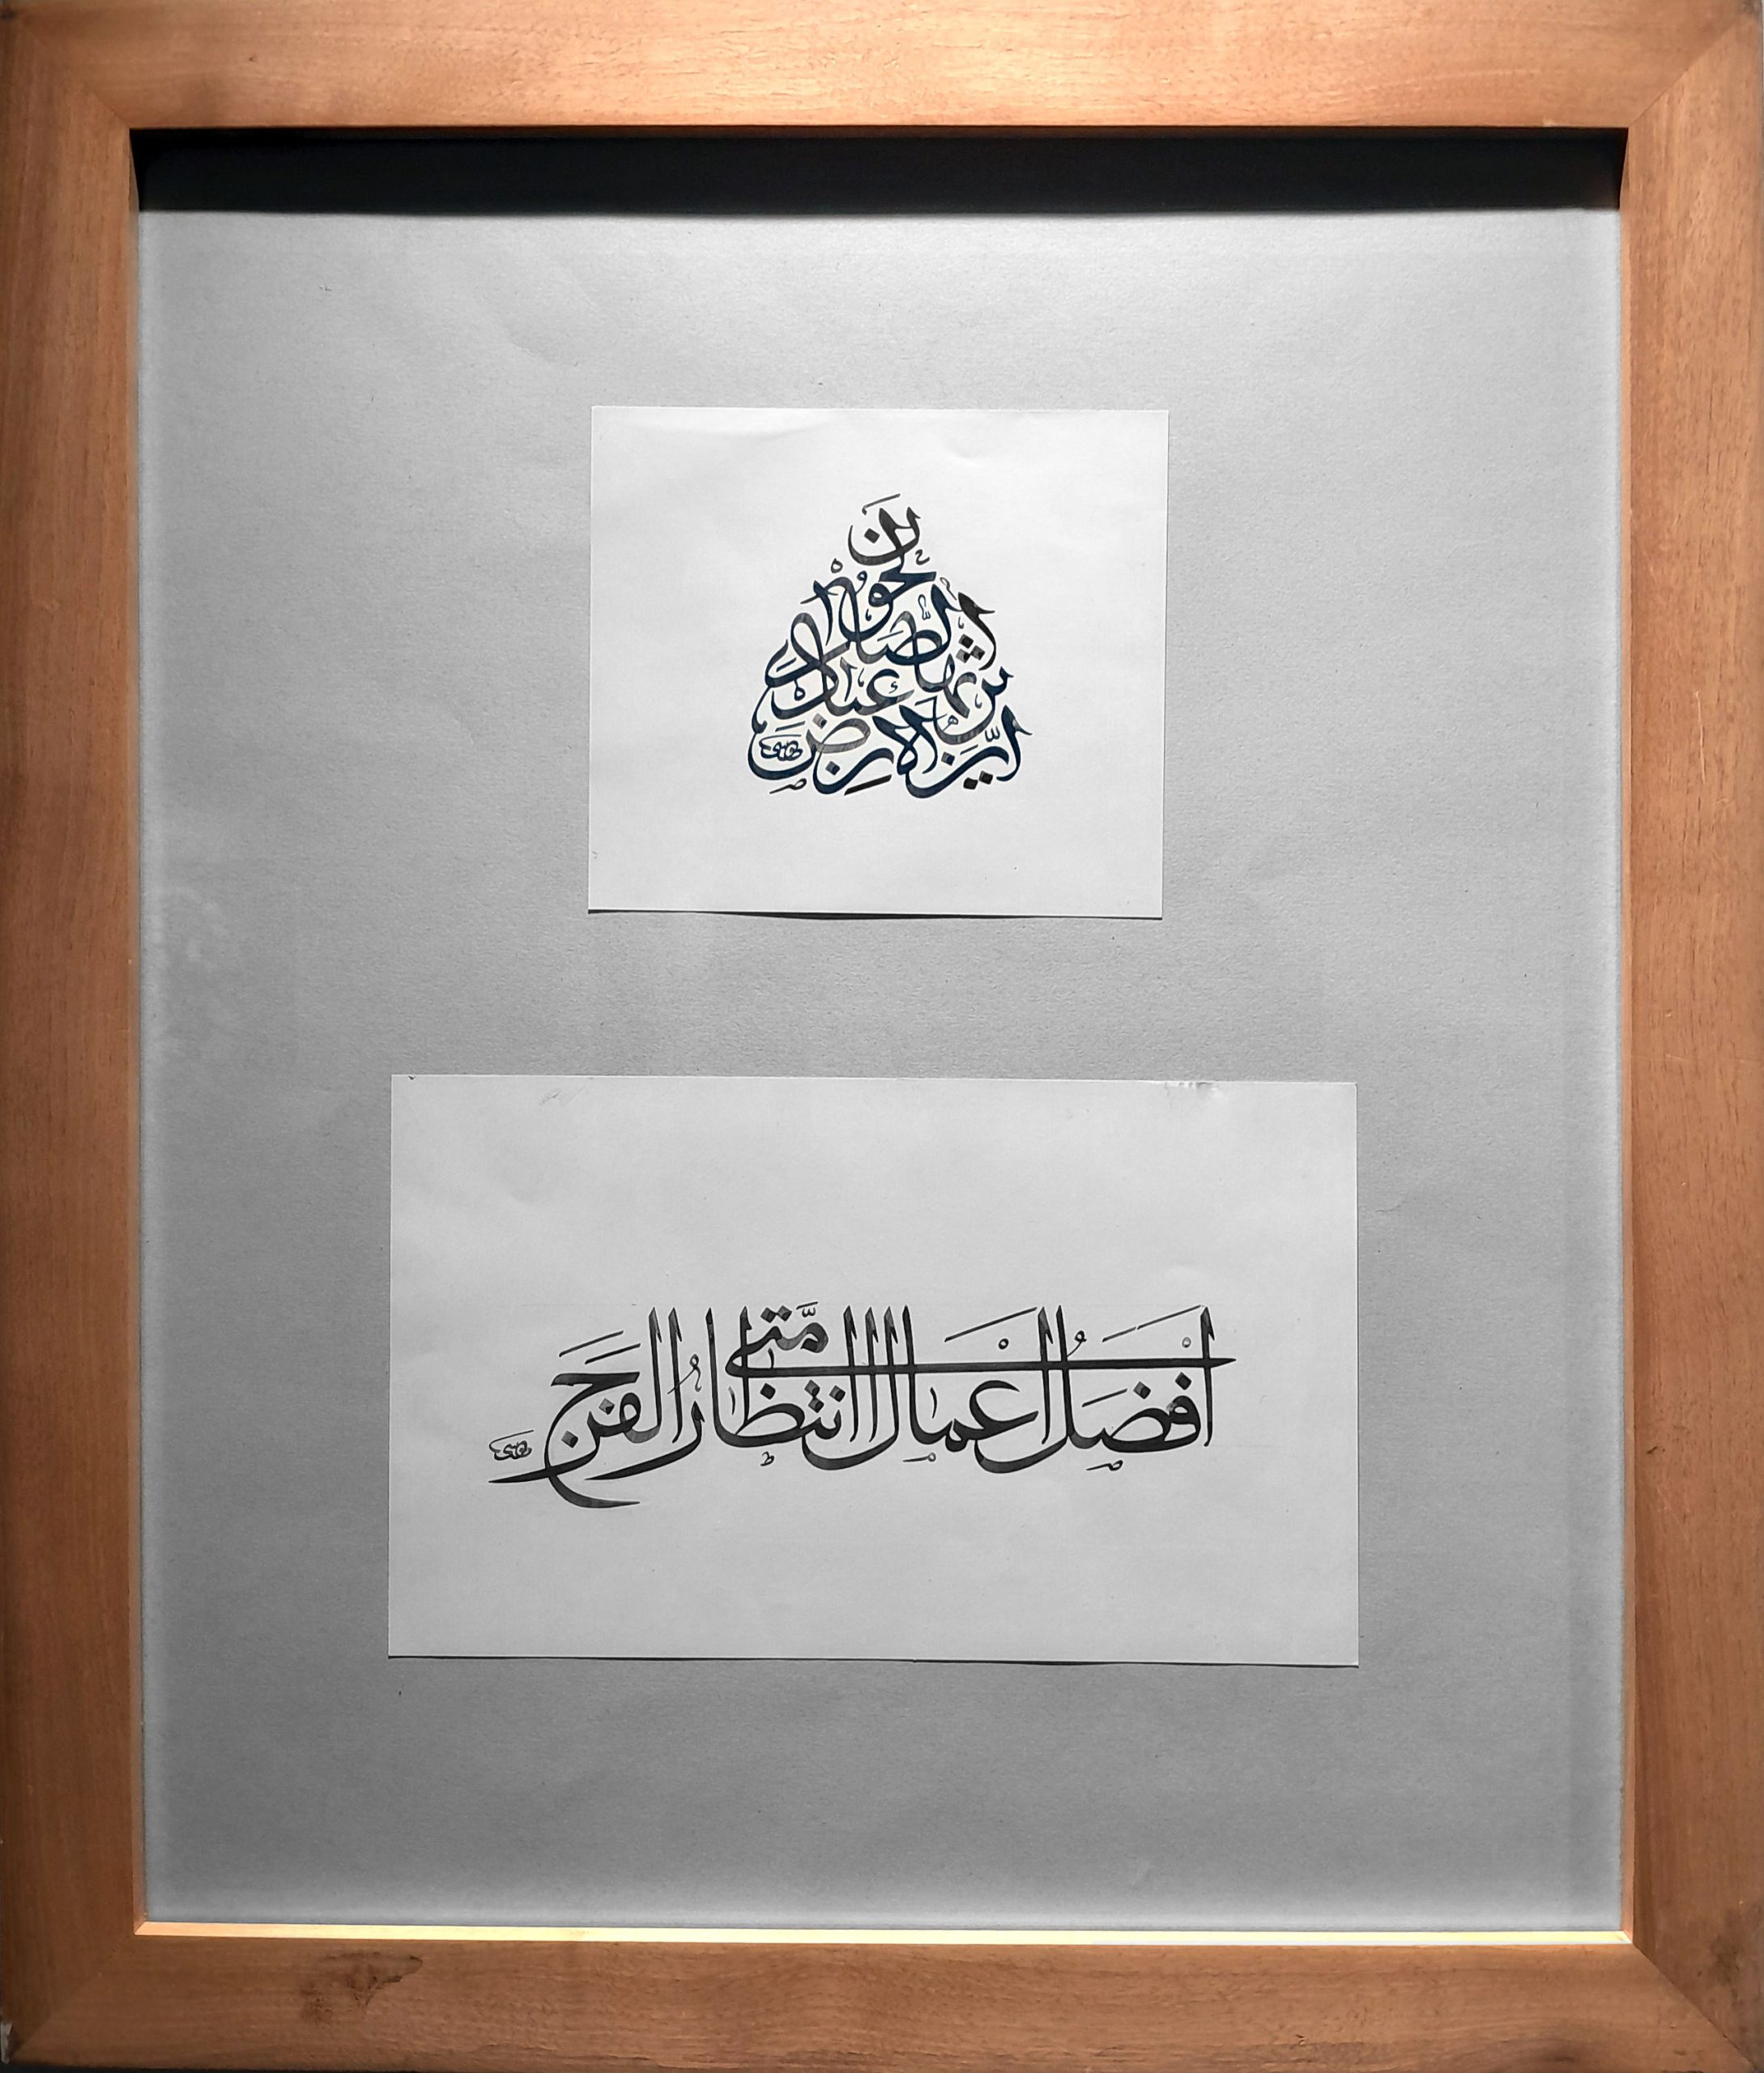 ان الارض يرثها عبادي الصالحون
افضل اعمال امتی انتظار الفرج